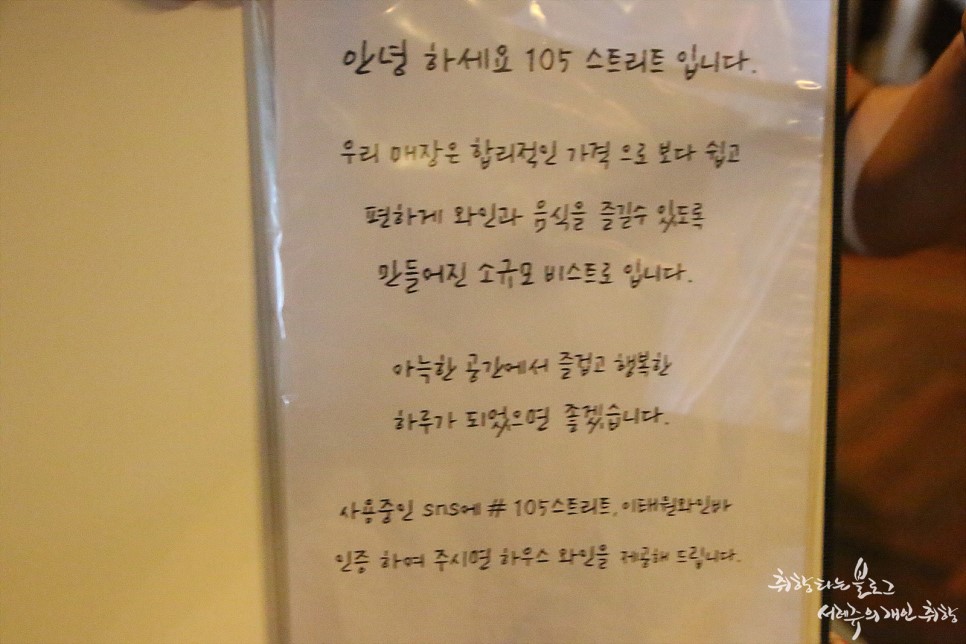 안녕 하세요 105 스트리트 입니다.
우리 매장은 합리적인 가격 으로 보다 쉽고
편하게 와인과 음식을 즐길수 있도록
만들어진 소규모 비스트로 입니다.
아늑한 공간에서 즐겁고 행복한
하루가 되었으면 좋겠습니다.
사용중인 sns에 # 105스트리트, 이태원와인바
인증 하여 주시면 하우스 와인을 제공해 드립니다.
취향타는 블로그
서레주의 개인 취향